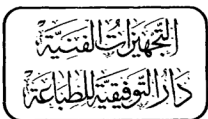 التَّجْهِيزَاتُ الفَنِّيَّة
دَارُ التَّوْفِيقِيَّة لِلطِّبَاعَة